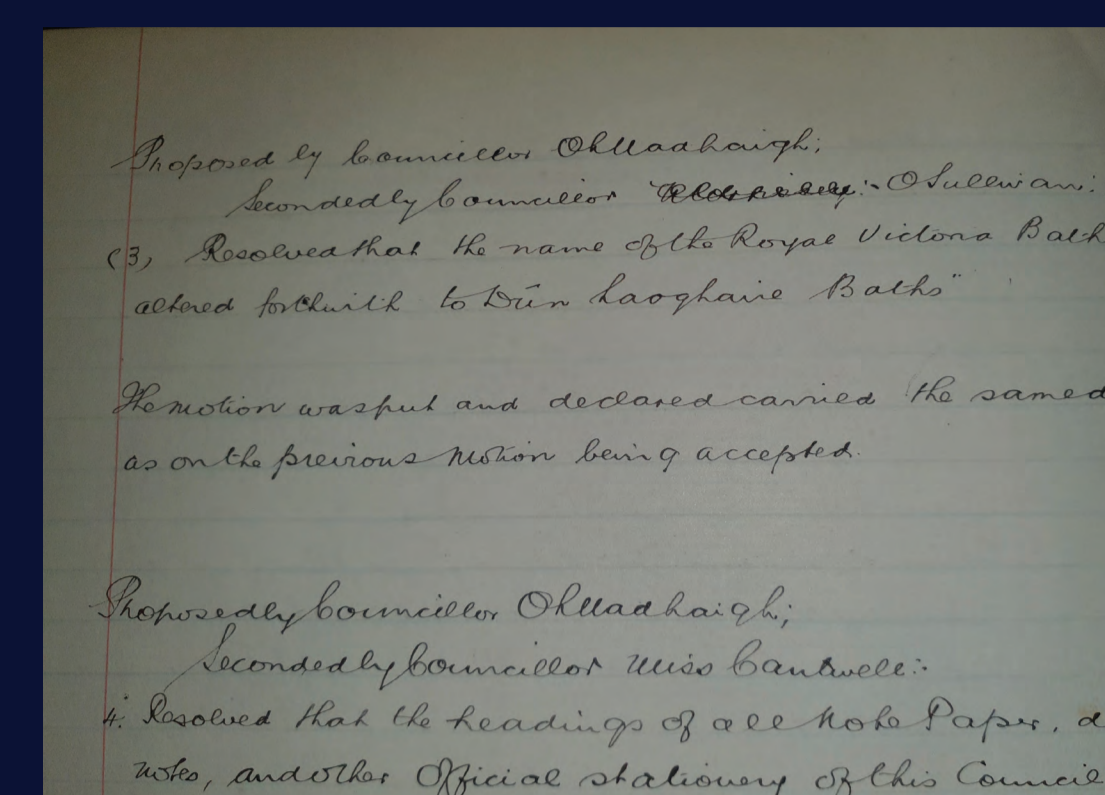 Proposed by Councillor OhUadhaigh;
Seconded by Councillor :- OSullivan:
(3) Resolved that the name of the Royal Victoria Bath
altered forthwith to Dún Laoghaire Baths"
The motion was put and declared carried the same d
as on the previous Motion being accepted.
Proposed by Councillor OhUadhaigh;
Seconded by Councillor Miss Cantwell:-
4. Resolved that the headings of all Note Paper, d
notes, and other Official stationery of this Council